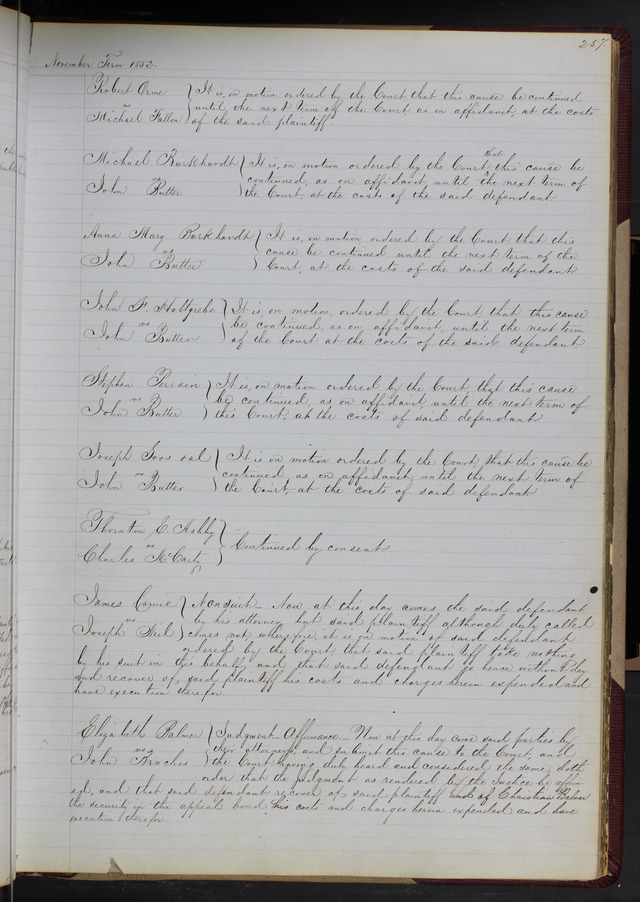 257.
November Term 1852.
Robert Orme } It is, on motion ordered by the Court that this cause be continued
vs } until, the next term of the Court, as on affidavit, at the costs
Michael Fallon } of the said plaintiff
Michael Burkhardt } It is, on motion ordered by the Court that this cause be
continued, as on affidavit, until the next term of
John Butter } the Court, at the costs of the said defendant
Anna Mary Burkhardt } It is, on motion ordered by the Court, that this
vs cause be continued until the next term of the
John Butter } Court, at the costs of the said defendant
John F. Holtgrebe } It is, on motion, ordered by the Court, that this cause
vs be continued, as on affidavit, until the next term
John Butter } of the Court at the costs of the said defendant
Stephen Perrain } It is, on motion ordered by the Court, that this cause
vs be continued, as on affidavit, until the next term of
John Butter } this Court, at the costs of said defendant
Joseph al } It is on motion ordered by the Court, that this cause be
vs continued as on affidavit, until the next term of
John Butter } the Court, at the costs of said defendant
Thornton C. Ashby }
vs } Continued by consent
Charles McCarty }
James Cowie } Nonsuit – Now at this day comes the said defendant
vs by his attorney, but said plaintiff although duly called
Joseph Heil } comes not, wherefore, it is on motion of said defendant
ordered by the Court, that said plaintiff take nothing
by his suit in this behalf, and that said defendant go hence without day
and recover of said plaintiff his costs and charges herein expended and
have execution therefor.
Elizabeth Palmer } Judgment Affirmance – Now at this day come said parties by
vs their attorneys, and submit this cause to the Court, and
John Braches } the Court having duly heard and considered the same, doth
order that the judgment as rendered by the Justice be affirm
ed, and that said defendant recover of said plaintiff and of Christian
the security in the appeal bond his costs and charges herein expended and have
execution therefor